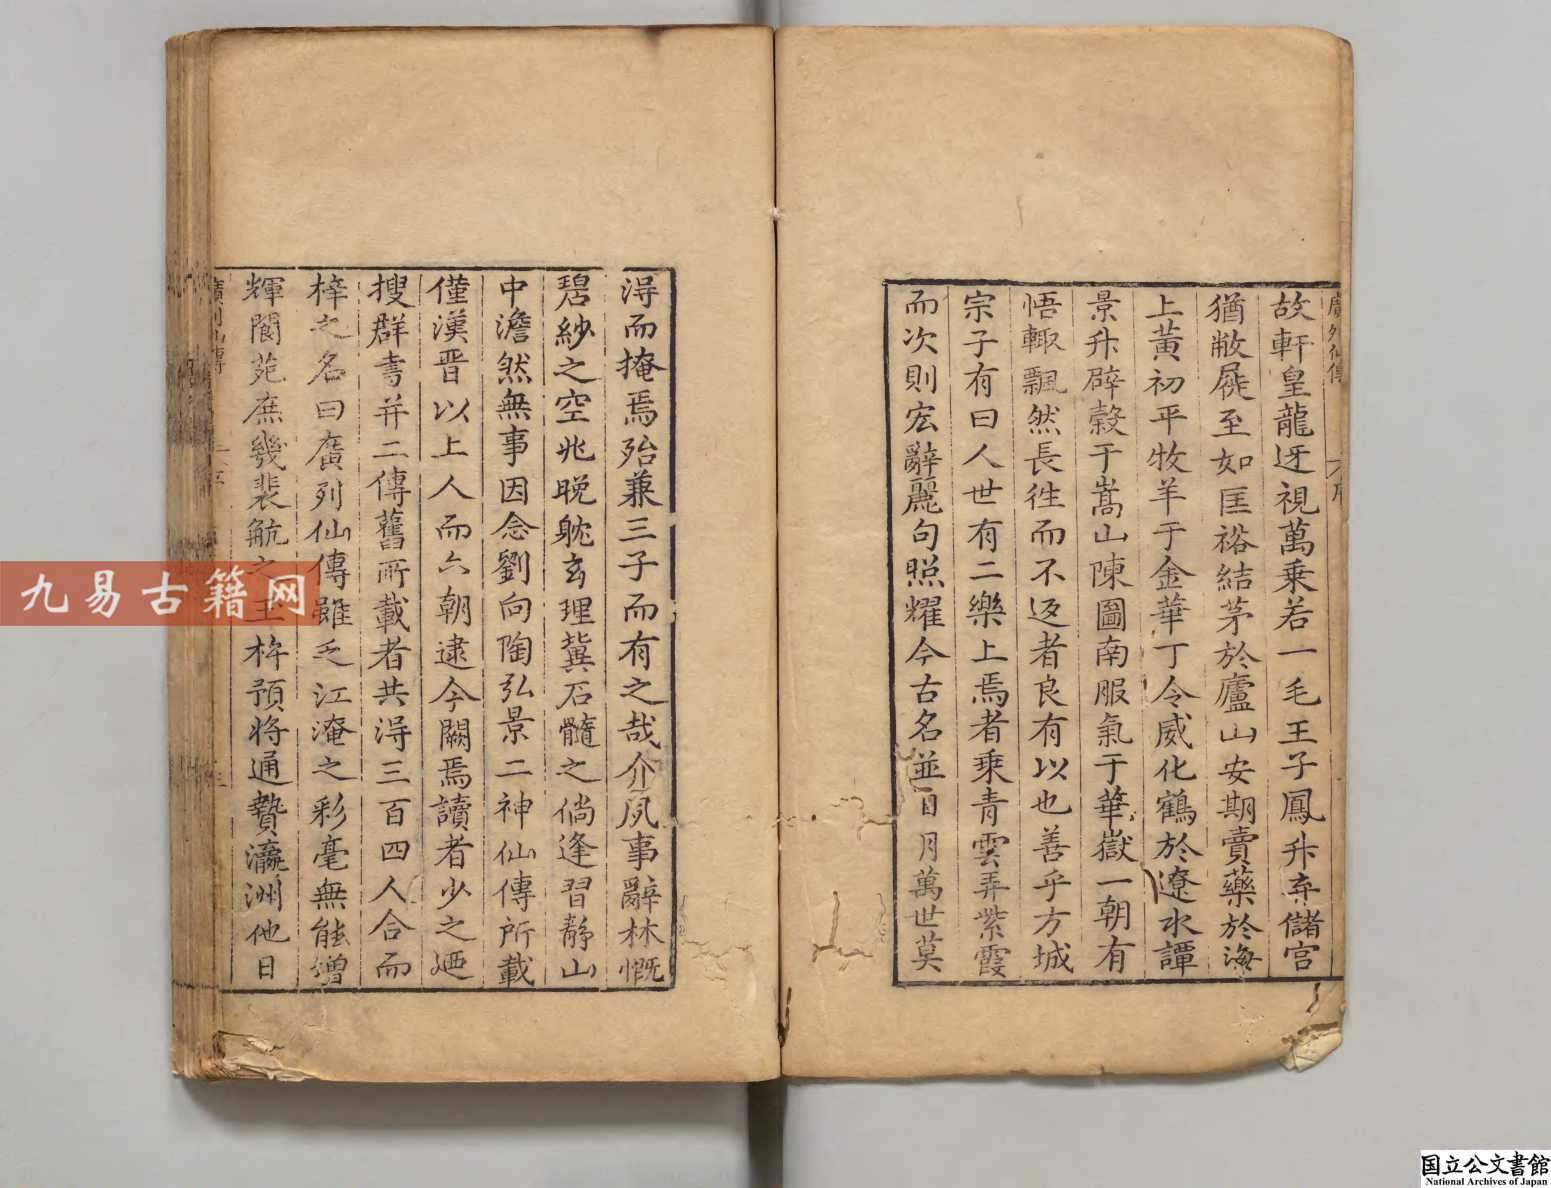 故軒皇龍迓視萬乗若一毛王子鳳升弃儲宮
猶敝屣至如匡裕結茅於廬山安期賣藥於海
上黃初平牧羊于金華丁令威化鶴於遼水譚
景升辟穀于嵩山陳圖南服氣于華嶽一朝有
悟輙飄然長徃而不返者良有以也善乎方城
宗子有曰人世有二樂上焉者乗青雲弄紫霞
而次則宏辭麗句照耀今古名並日月萬世莫
淂而掩焉殆兼三子而有之哉介夙事辭林慨
碧紗之空兆晚躭玄理冀石髓之倘逢習静山
中澹然無事因念劉向陶弘景二神仙傳所載
僅漢晋以上人而六朝逮今闕焉讀者少之廼
搜群書并二傳舊所載者共淂三百四人合而
梓之名曰廣列仙傳雖乏江淹之彩毫無能増
輝閬苑庶幾裴航之玉杵預將通贄瀛洲他日
廣列仙傳
九易古籍网
国立公文書館
National Archives of Japan